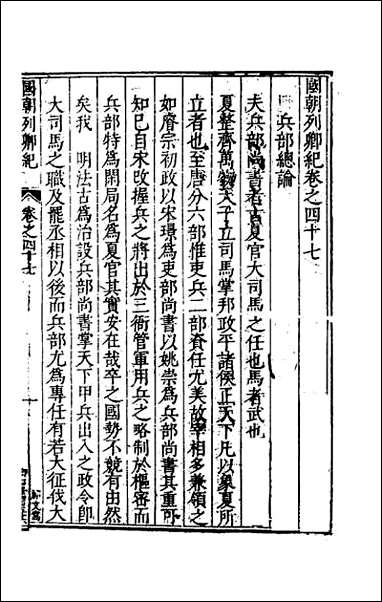 國朝列卿紀卷之四十七
兵部總論
夫兵部尚書者古夏官大司馬之任也馬者武也
夏整齊萬物天子立司馬掌邦政平諸侯正天下凡以象夏所
立者也至唐分六部惟吏兵二部資任尤美故宰相多兼領之
如睿宗初政以宋璟爲吏部尚書以姚崇爲兵部尚書其重可
知已自宋改握兵之將出於三衙管軍用兵之略制於樞密而
兵部特爲閑局名爲夏官其實安在哉卒之國勢不競有由然
矣我 明法古爲治設兵部尚書掌天下甲兵出入之政令卽
大司馬之職及罷丞相以後而兵部尤爲專任有若大征伐大
國朝列卿紀 卷之四十七 一